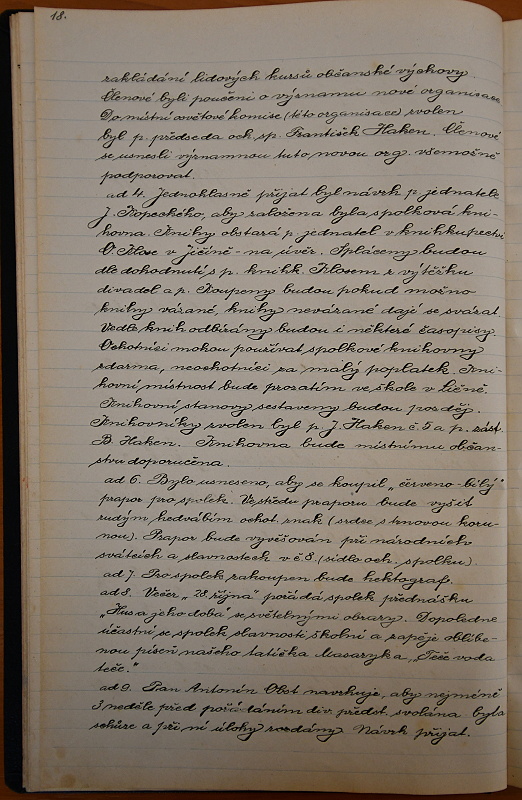 18.
zakládání lidových kursů občanské výchovy.
Členové byli poučeni o významu nové organisace.
Do místní osvětové komise (této organisace) zvolen
byl p. předseda och. sp. František Haken. Členové
se usnesli významnou tuto novou org. všemožně
podporovat.
ad 4. Jednohlasně přijat byl návrh p. jednatele
J. Kopeckého, aby založena byla spolková kni-
hovna. Knihy obstará p. jednatel v knihkupectví
O. Klose v Jičíně - na úvěr. Spláceny budou
dle dohodnutí s p. knihk. Klosem z výtěžku
divadel a p. Koupeny budou pokud možno
knihy vázané, knihy nevázané dají se svázat.
Vedle knih odbírány budou i některé časopisy.
Ochotníci mohou používat spolkové knihovny
zdarma, neochotníci za malý poplatek. Kni-
hovní místnost bude prozatím ve škole v Líčně.
Knihovní stanovy sestaveny budou později.
Knihovníky zvolen byl p. J. Haken č. 5 a p. zást.
B. Haken. Knihovna bude místnímu občan-
stvu doporučena.
ad 6. Bylo usneseno, aby se koupil „červeno-bílý"
prapor pro spolek. Ve středu praporu bude vyšit
rudým hedvábím ochot. znak (srdce s trnovou koru-
nou). Prapor bude vyvěšován při národních
svátcích a slavnostech v č. 8. (sídlo och. spolku).
ad 7. Pro spolek zakoupen bude hektograf.
ad 8. Večer „28. října" pořádá spolek přednášku
„Hus a jeho doba" se světelnými obrazy. Dopoledne
účastní se spolek slavnosti školní a zapěje oblíbe-
nou píseň našeho tatíčka Masaryka „Teče voda
teče."
ad 9. Pan Antonín Obst navrhuje, aby nejméně
3 neděle před pořádáním div. předst. svolána byla
schůze a při ní úlohy rozdány. Návrh přijat.